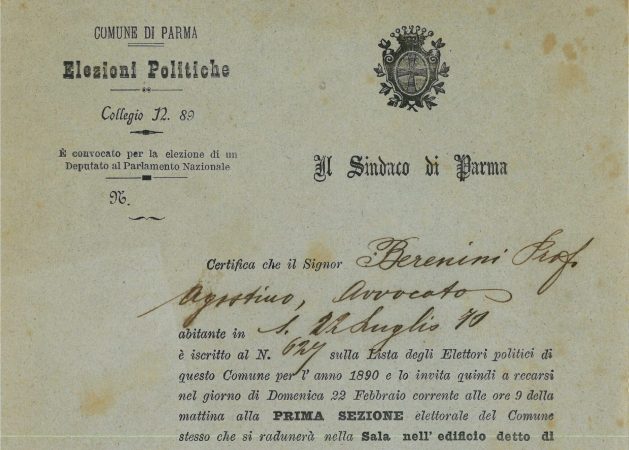 COMUNE DI PARMA
Elezioni Politiche
Collegio N. 89
È convocato per la elezione di un
Deputato al Parlamento Nazionale
N.
Il Sindaco di Parma
Certifica che il Signor Berenini Prof.
Agostino, Avvocato
abitante in S. 22 Luglio 70
è iscritto al N. 627 sulla Lista degli Elettori politici di
questo Comune per l'anno 1890 e lo invita quindi a recarsi
nel giorno di Domenica 22 Febbraio corrente alle ore 9 della
mattina alla PRIMA SEZIONE elettorale del Comune
stesso che si radunerà nella Sala nell'edificio detto di